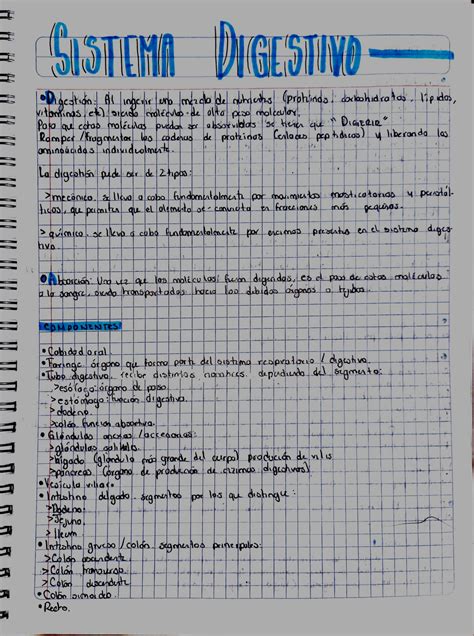 SISTEMA DIGESTIVO
•Digestión: Al ingerir una mezcla de nutrientes (proteínas, carbohidratos, lípidos,
vitaminas, etc), siendo moléculas de alto peso molecular.
Para que estas moléculas puedan ser absorbidas se tienen que "DIGERIR"
Romper/fragmentar las cadenas de proteínas (enlaces peptídicos) y liberando los
aminoácidos individualmente.
La digestión puede ser de 2 tipos:
>mecánico. se lleva a cabo fundamentalmente por movimientos masticatorios y peristál-
ticos, que permiten que el alimento se convierta en fracciones más pequeños.
>químico. se lleva a cabo fundamentalmente por enzimas presentes en el sistema diges-
tivo.
•Absorción: Una vez que las moléculas fueron digeridas, es el paso de estas moléculas
a la sangre, siendo transportadas hacia los debidos órganos o tejidos.
COMPONENTES
•Cavidad oral.
•Faringe. órgano que forma parte del sistema respiratorio / digestivo.
•Tubo digestivo. recibe distintos nombres, dependiendo del segmento:
>esófago: órgano de paso.
>estómago: función digestiva.
>duodeno.
>colón. función absortiva.
•Glándulas anexas /accesorias:
>glándulas salivales.
>hígado (glándula más grande del cuerpo) producción de vilis
>páncreas (órgano de producción de enzimas digestivas)
•Vesícula viliar.
•Intestino delgado. segmentos por los que distingue:
>Duodeno.
>Yejuno.
>Ileum
•Intestino grueso /colón. segmentos principales:
>Colón ascendente
>Colón transverso.
>Colón descendente
•Colón sigmoideo.
•Recto.